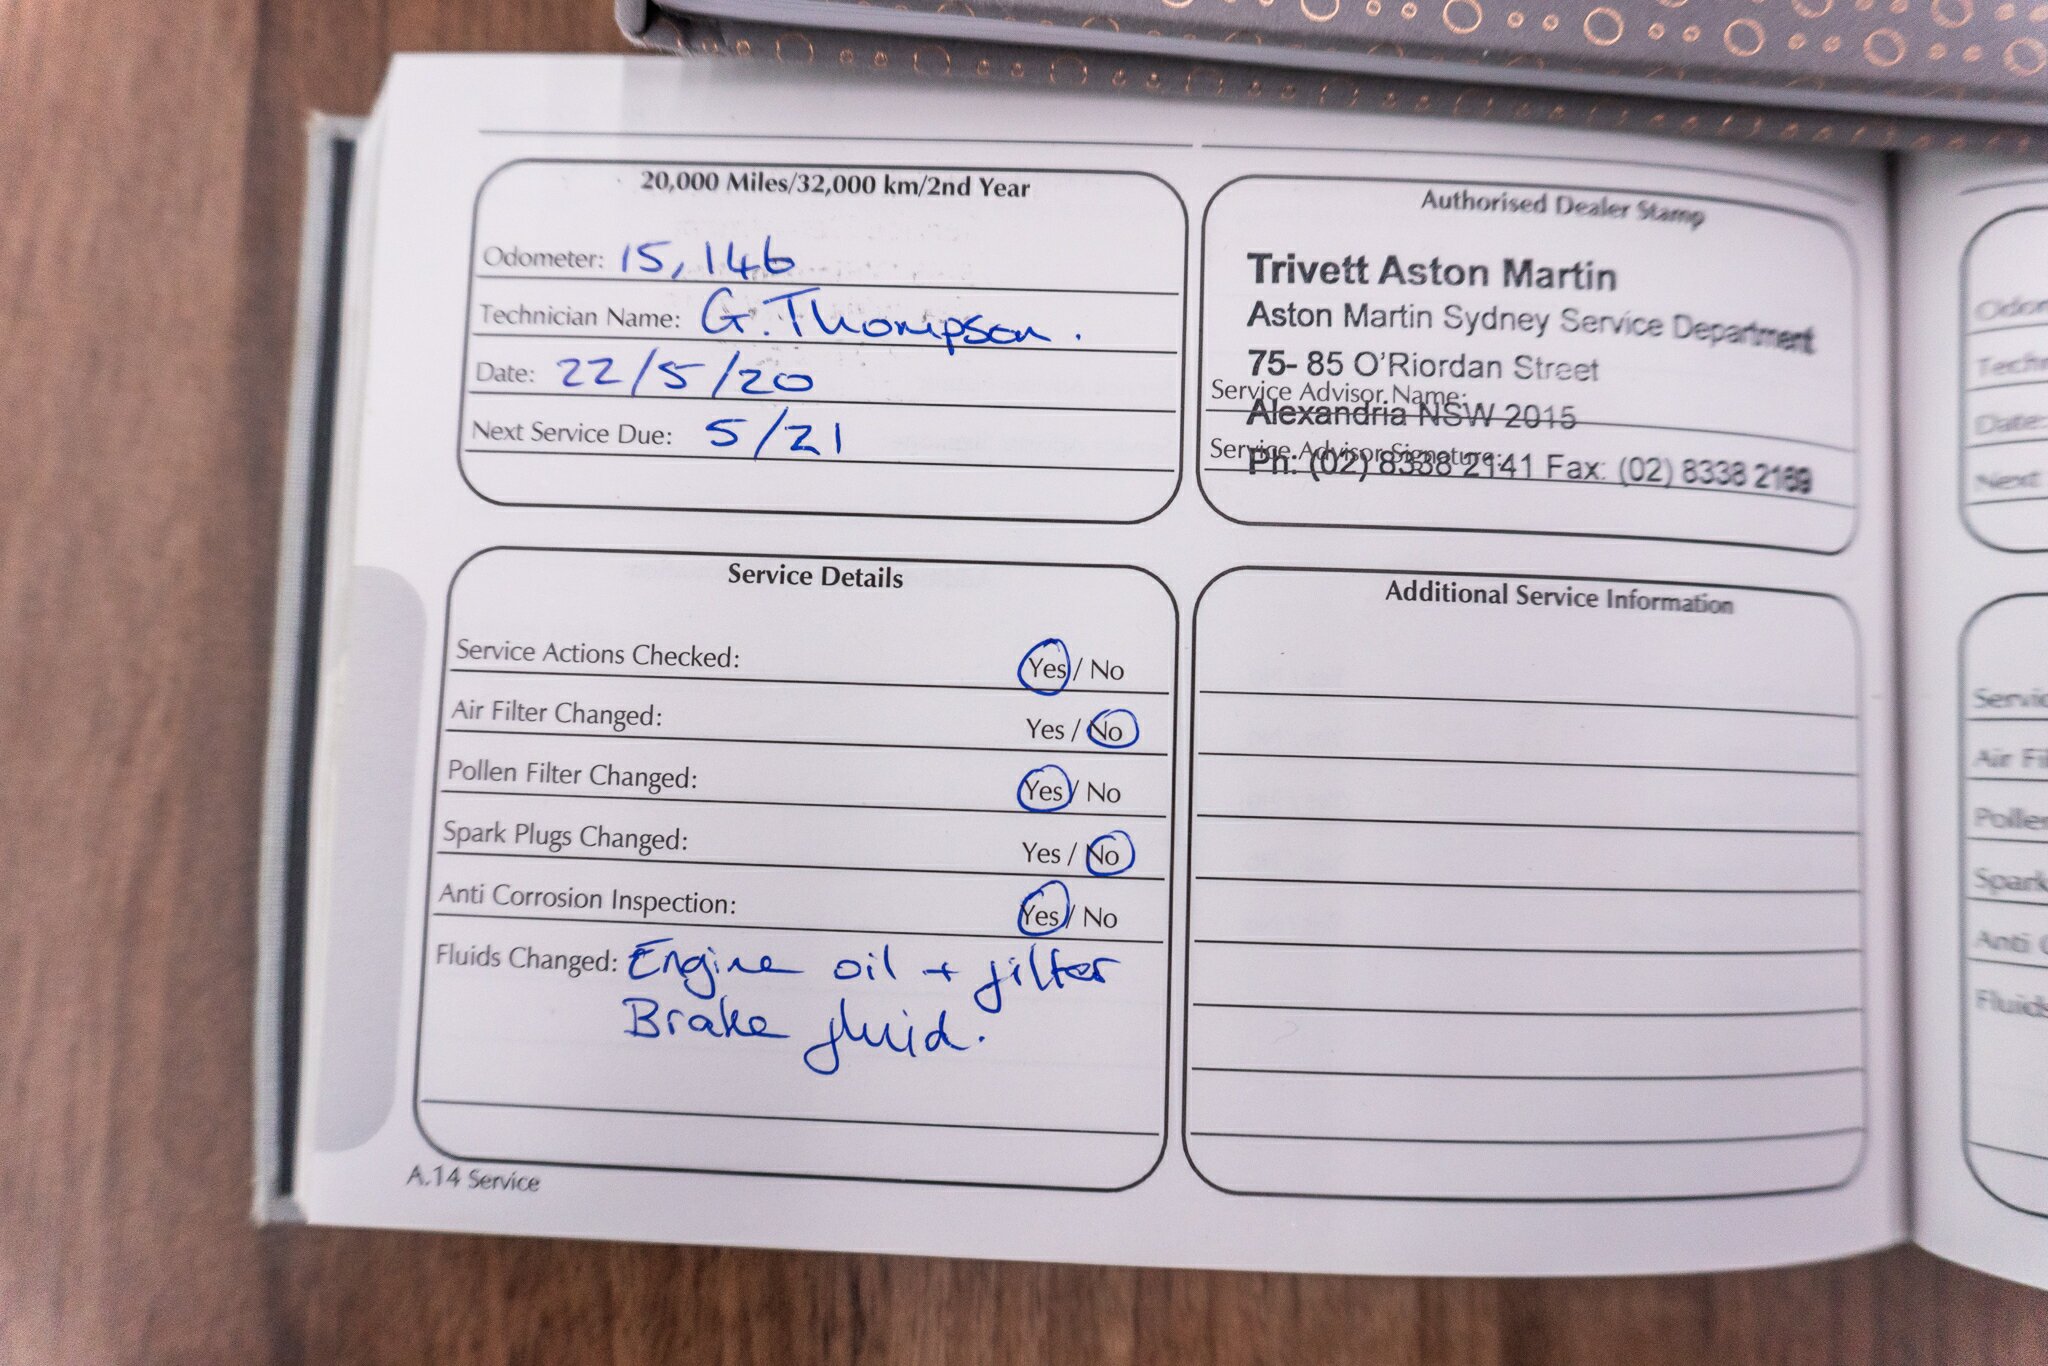 20,000 Miles/32,000 km/2nd Year
Odometer: 15,146
Technician Name: G. Thompson.
Date: 22/5/20
Next Service Due: 5/21
Authorised Dealer Stamp
Trivett Aston Martin
Aston Martin Sydney Service Department
75- 85 O'Riordan Street
Service Advisor Name:
Alexandria NSW 2015
Service Advisor Signature:
Ph: (02) 8338 2141 Fax: (02) 8338 2169
Service Details
Service Actions Checked: Yes / No
Air Filter Changed: Yes / No
Pollen Filter Changed: Yes / No
Spark Plugs Changed: Yes / No
Anti Corrosion Inspection: Yes / No
Fluids Changed: Engine oil + filter
Brake fluid.
Additional Service Information
A.14 Service
Odo
Tech
Date:
Next
Servic
Air Fil
Pollen
Spark
Anti C
Fluids